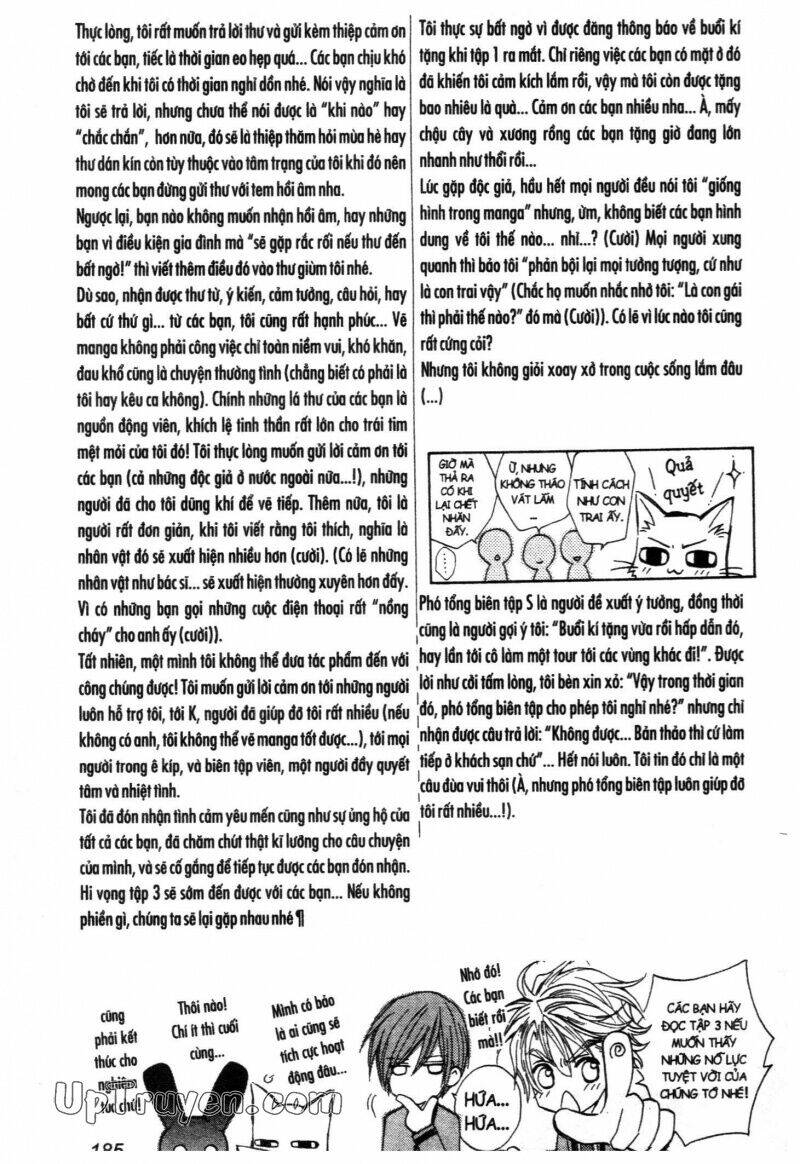 Thực lòng, tôi rất muốn trả lời thư và gửi kèm thiệp cảm ơn
tới các bạn, tiếc là thời gian eo hẹp quá... Các bạn chịu khó
chờ đến khi tôi có thời gian nghỉ dồn nhé. Nói vậy nghĩa là
tôi sẽ trả lời, nhưng chưa thể nói được là “khi nào” hay
“chắc chắn”, hơn nữa, đó sẽ là thiệp thăm hỏi mùa hè hay
thư dán kín còn tùy thuộc vào tâm trạng của tôi khi đó nên
mong các bạn đừng gửi thư với tem hồi âm nha.
Ngược lại, bạn nào không muốn nhận hồi âm, hay những
bạn vì điều kiện gia đình mà “sẽ gặp rắc rối nếu thư đến
bất ngờ!” thì viết thêm điều đó vào thư giùm tôi nhé.
Dù sao, nhận được thư từ, ý kiến, cảm tưởng, câu hỏi, hay
bất cứ thứ gì... từ các bạn, tôi cũng rất hạnh phúc... Vẽ
manga không phải công việc chỉ toàn niềm vui, khó khăn,
đau khổ cũng là chuyện thường tình (chẳng biết có phải là
tôi hay kêu ca không). Chính những lá thư của các bạn là
nguồn động viên, khích lệ tinh thần rất lớn cho trái tim
mệt mỏi của tôi đó! Tôi thực lòng muốn gửi lời cảm ơn tới
các bạn (cả những độc giả ở nước ngoài nữa...!), những
người đã cho tôi dũng khí để vẽ tiếp. Thêm nữa, tôi là
người rất đơn giản, khi tôi viết rằng tôi thích, nghĩa là
nhân vật đó sẽ xuất hiện nhiều hơn (cười). (Có lẽ những
nhân vật như bác sĩ... sẽ xuất hiện thường xuyên hơn đấy.
Vì có những bạn gọi những cuộc điện thoại rất “nồng
cháy” cho anh ấy (cười)).
Tất nhiên, một mình tôi không thể đưa tác phẩm đến với
công chúng được! Tôi muốn gửi lời cảm ơn tới những người
luôn hỗ trợ tôi, tới K, người đã giúp đỡ tôi rất nhiều (nếu
không có anh, tôi không thể vẽ manga tốt được...), tới mọi
người trong ê kíp, và biên tập viên, một người đầy quyết
tâm và nhiệt tình.
Tôi đã đón nhận tình cảm yêu mến cũng như sự ủng hộ của
tất cả các bạn, đã chăm chút thật kĩ lưỡng cho câu chuyện
của mình, và sẽ cố gắng để tiếp tục được các bạn đón nhận.
Hi vọng tập 3 sẽ sớm đến được với các bạn... Nếu không
phiền gì, chúng ta sẽ lại gặp nhau nhé ¶
Tôi thực sự bất ngờ vì được đăng thông báo về buổi kí
tặng khi tập 1 ra mắt. Chỉ riêng việc các bạn có mặt ở đó
đã khiến tôi cảm kích lắm rồi, vậy mà tôi còn được tặng
bao nhiêu là quà... Cảm ơn các bạn nhiều nha... À, mấy
chậu cây và xương rồng các bạn tặng giờ đang lớn
nhanh như thổi rồi...
Lúc gặp độc giả, hầu hết mọi người đều nói tôi “giống
hình trong manga” nhưng, ừm, không biết các bạn hình
dung về tôi thế nào... nhỉ...? (Cười) Mọi người xung
quanh thì bảo tôi “phản bội lại mọi tưởng tượng, cứ như
là con trai vậy” (Chắc họ muốn nhắc nhở tôi: “Là con gái
thì phải thế nào?” đó mà (Cười)). Có lẽ vì lúc nào tôi cũng
rất cứng cỏi?
Nhưng tôi không giỏi xoay xở trong cuộc sống lắm đâu
(...)
Quả
quyết
TÍNH CÁCH
NHƯ CON
TRAI ẤY.
Ừ, NHƯNG
KHÔNG THÁO
VÁT LẮM
...
GIỜ MÀ
THẢ RA
CÓ KHI
LẠI CHẾT
NHĂN
ĐẤY.
......
Phó tổng biên tập S là người đề xuất ý tưởng, đồng thời
cũng là người gợi ý tôi: “Buổi kí tặng vừa rồi hấp dẫn đó,
hay lần tới cô làm một tour tới các vùng khác đi!”. Được
lời như cởi tấm lòng, tôi bèn xin xỏ: “Vậy trong thời gian
đó, phó tổng biên tập cho phép tôi nghỉ nhé?” nhưng chỉ
nhận được câu trả lời: “Không được... Bản thảo thì cứ làm
tiếp ở khách sạn chứ”... Hết nói luôn. Tôi tin đó chỉ là một
câu đùa vui thôi (À, nhưng phó tổng biên tập luôn giúp đỡ
tôi rất nhiều...!).
CÁC BẠN HÃY
ĐỌC TẬP 3 NẾU
MUỐN THẤY
NHỮNG NỖ LỰC
TUYỆT VỜI CỦA
CHÚNG TỚ NHÉ!
Nhớ đó!
Các bạn
biết rồi
mà!!
HỨA...
HỨA...
Mình có bảo
là ai cũng sẽ
tích cực hoạt
động đâu...
Thôi nào!
Chí ít thì cuối
cùng...
cũng
phải kết
thúc cho
nghiêm
túc chứ!
UpTruyen.com
185